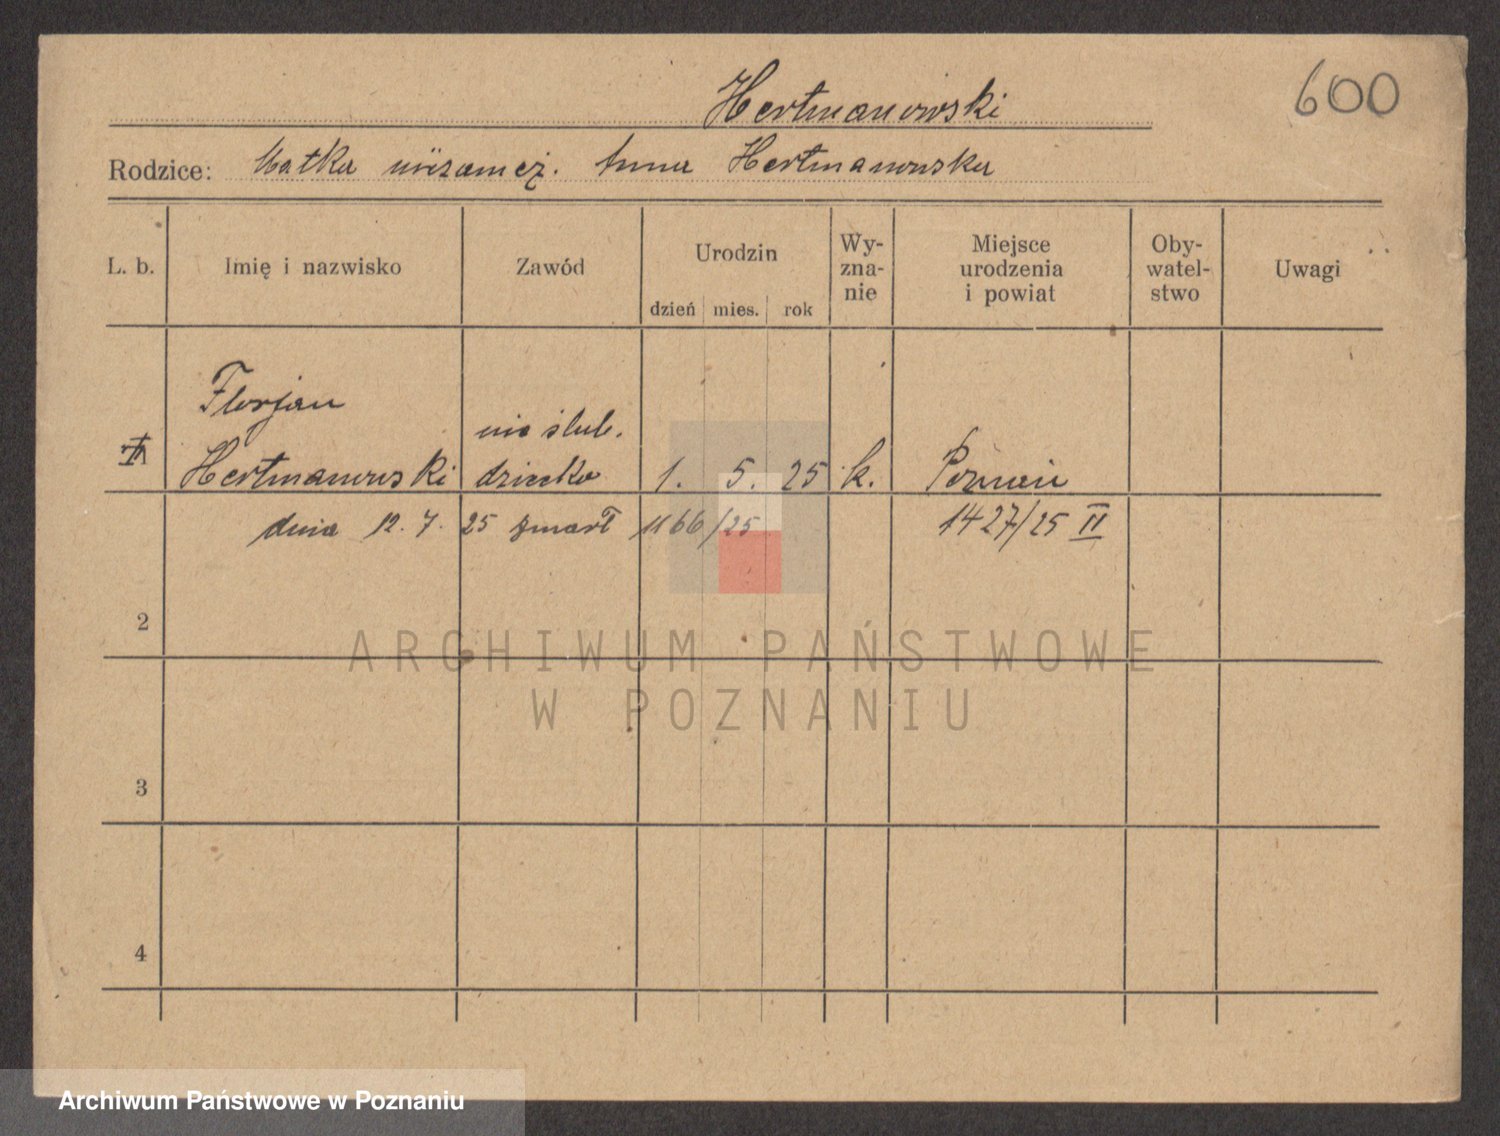 Hertmanowski
600
Rodzice: Matka niezamęż. Anna Hertmanowska
L. b. Imię i nazwisko Zawód Urodzin dzień mies. rok Wy- zna- nie Miejsce urodzenia i powiat Oby- watel- stwo Uwagi
Florjan
nie ślub.
1 Hertmanowski dziecko 1. 5. 25 k. Poznań
dnia 12. 7. 25 zmarł 1166/25 1427/25 II
2
ARCHIWUM PAŃSTWOWE
W POZNANIU
3
4
Archiwum Państwowe w Poznaniu